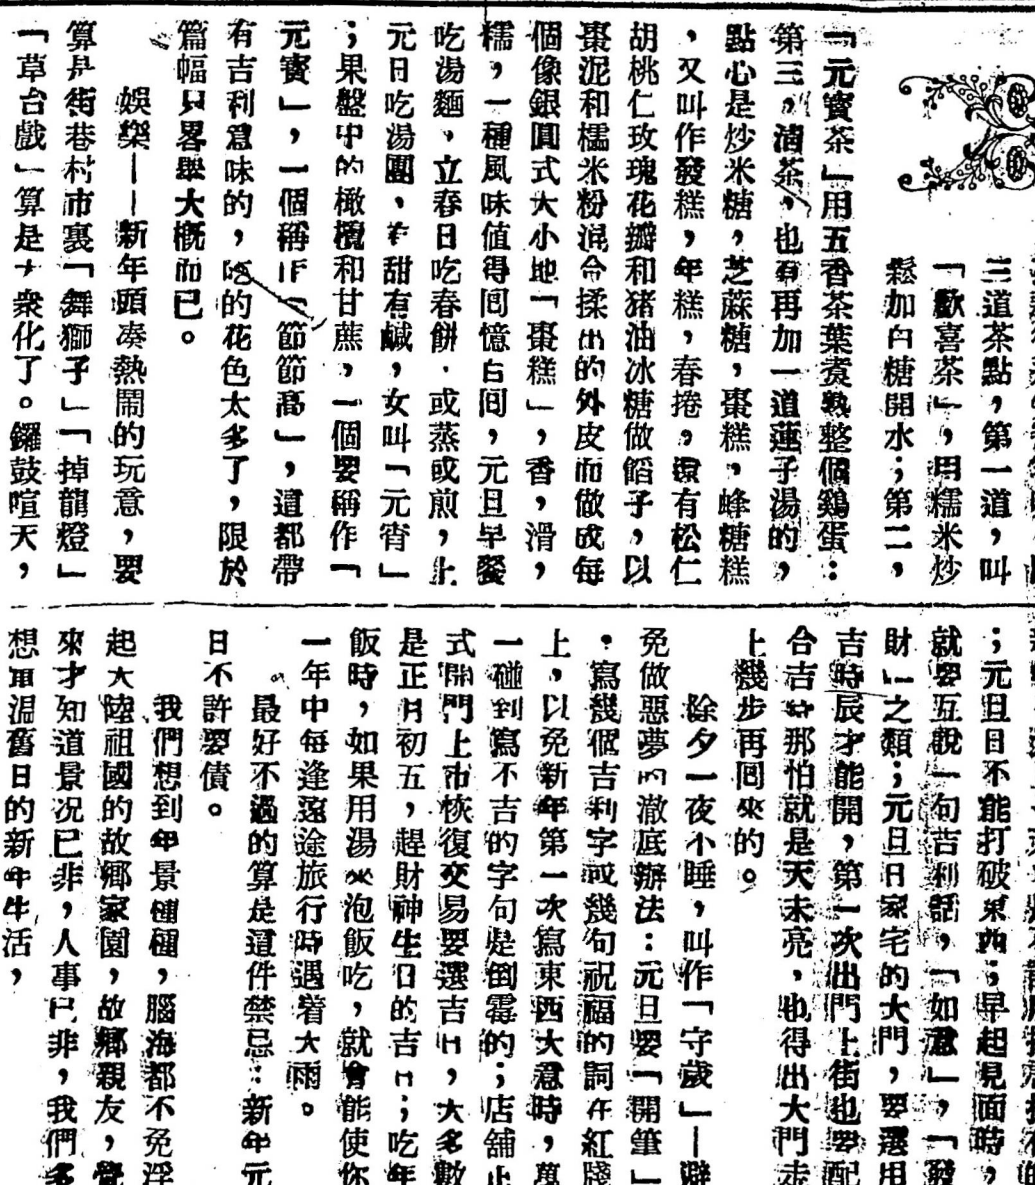 三道茶點，第一道，叫
「歡喜茶」，用糯米炒
鬆加白糖開水；第二，
「元寶茶」用五香茶葉煑熟整個鷄蛋：
第三，清茶，也有再加一道蓮子湯的，
點心是炒米糖，芝蔴糖，棗糕，蜂糖糕
，又叫作發糕，年糕，春捲，還有松仁
胡桃仁玫瑰花瓣和猪油冰糖做餡子，以
棗泥和糯米粉混合揉出的外皮而做成每
個像銀圓式大小地「棗糕」，香，滑，
糯，一種風味值得囘憶白囘，元旦早餐
吃湯麵，立春日吃春餅．或蒸或煎，上
元日吃湯圓，有甜有鹹，女叫「元宵」
；果盤中的橄欖和甘蔗，一個要稱作「
元寶」，一個稱作「節節高」，這都帶
有吉利意味的，吃的花色太多了，限於
篇幅只畧舉大概而已。
娛樂——新年頭湊熱鬧的玩意，要
算是街巷村市裏「舞獅子」「掉龍燈」
「草台戲」算是大衆化了。鑼鼓喧天，
；元旦日不能打破東西；早起見面時，
就要互說一句吉利話，「如意」，「發
財」之類；元旦日家宅的大門，要選用
吉時辰才能開，第一次出門上街也要配
合吉時那怕就是天未亮，也得出大門走
上幾步再囘來的。
除夕一夜小睡，叫作「守歲」—避
免做惡夢的澈底辦法：元旦要「開筆」
，寫幾個吉利字或幾句祝福的詞在紅牋
上，以免新年第一次寫東西大意時，萬
一碰到寫不吉的字句是倒霉的；店舖正
式開門上市恢復交易要選吉日，大多數
是正月初五，趕財神生日的吉日；吃年
飯時，如果用湯來泡飯吃，就會能使你
一年中每逢遠途旅行時遇着大雨。
最好不過的算是這件禁忌：新年元
日不許要債。
我們想到年景種種，腦海都不免浮
起大陸祖國的故鄉家園，故鄉親友，覺
來才知道景况已非，人事已非，我們多
想重温舊日的新年生活，